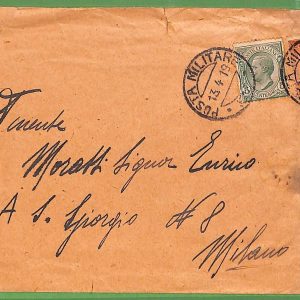 POSTA MILITARE
13.4.19
Tenente
Moratti Signor Enrico
A S. Giorgio N 8
Milano